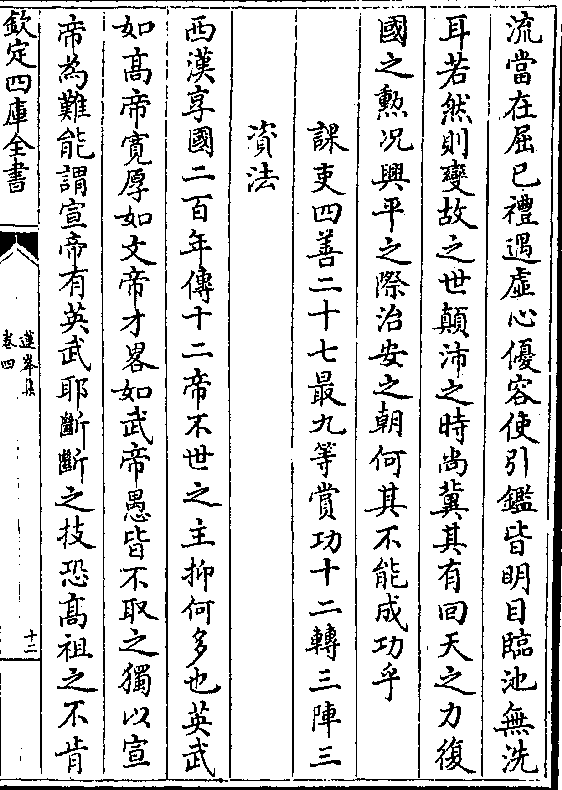 流當在屈已禮遇虛心優容使引鑑皆明目臨池無洗
耳若然則變故之世顛沛之時尚冀其有回天之力復
國之勲况興平之際治安之朝何其不能成功乎
課吏四善二十七最九等賞功十二轉三陣三
資法
西漢享國二百年傳十二帝不世之主抑何多也英武
如髙帝寛厚如文帝才畧如武帝愚皆不取之獨以宣
帝為難能謂宣帝有英武耶斷斷之技恐髙祖之不肯
欽定四庫全書
蓮峯集
卷四
十二